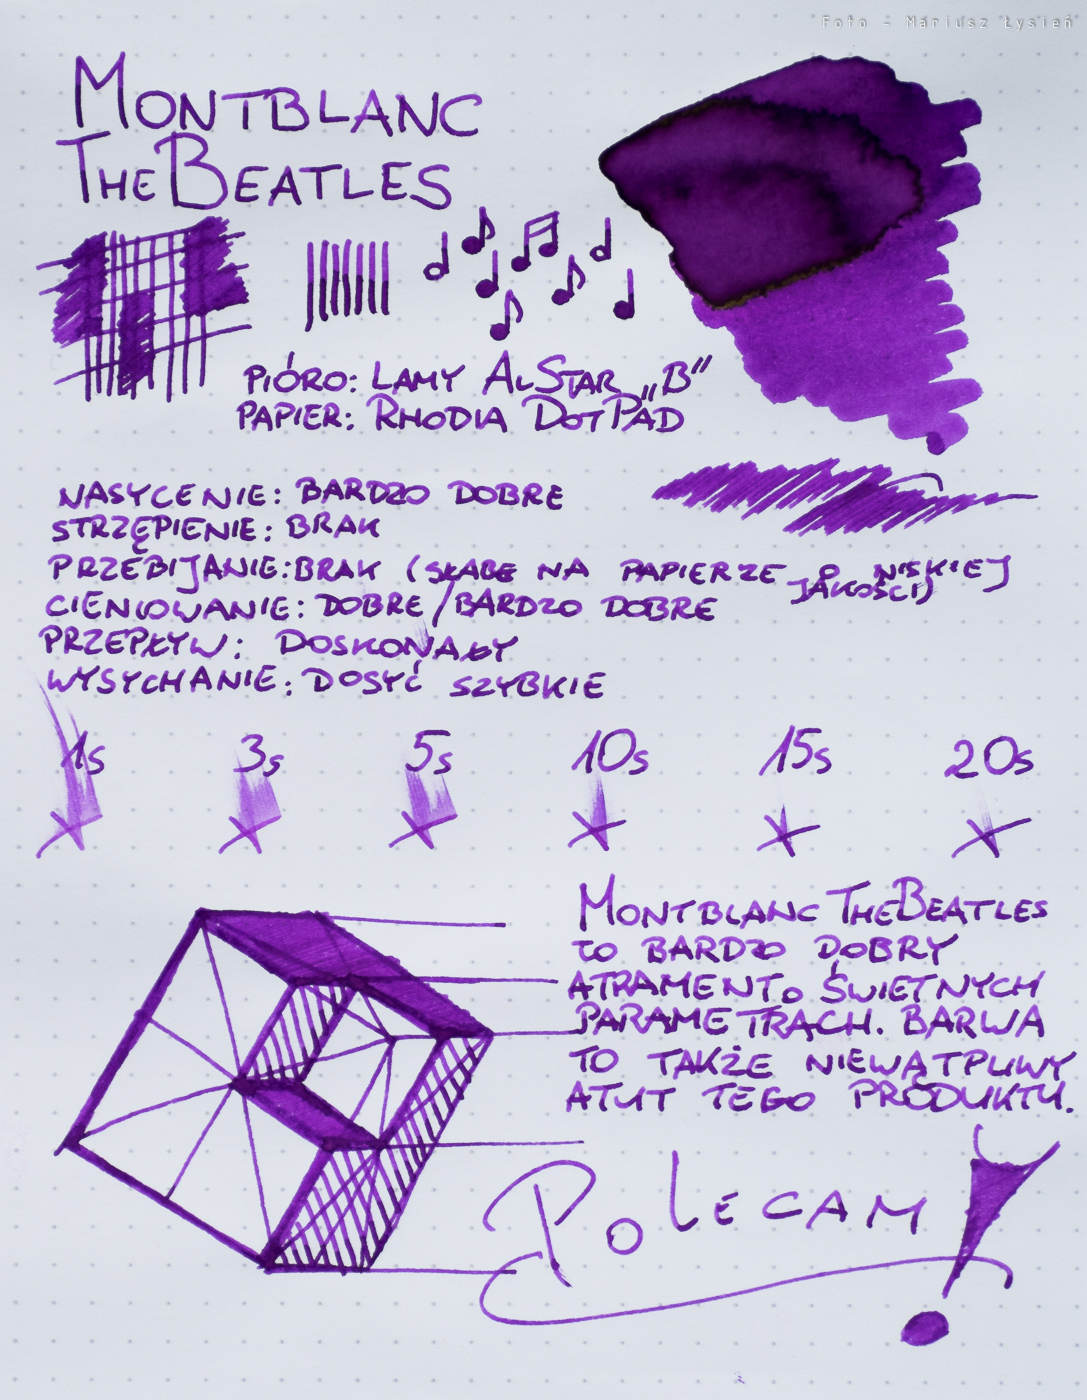 Foto - Mariusz Łysień
MONTBLANC
THE BEATLES
PIÓRO: LAMY ALSTAR „B”
PAPIER: RHODIA DOTPAD
NASYCENIE: BARDZO DOBRE
STRZĘPIENIE: BRAK
PRZEBIJANIE: BRAK (SŁABE NA PAPIERZE O NISKIEJ
JAKOŚCI)
CIENIOWANIE: DOBRE/BARDZO DOBRE
PRZEPŁYW: DOSKONAŁY
WYSYCHANIE: DOSYĆ SZYBKIE
1s 3s 5s 10s 15s 20s
MONTBLANC THE BEATLES
TO BARDZO DOBRY
ATRAMENT O ŚWIETNYCH
PARAMETRACH. BARWA
TO TAKŻE NIEWĄTPLIWY
ATUT TEGO PRODUKTU.
POLECAM!